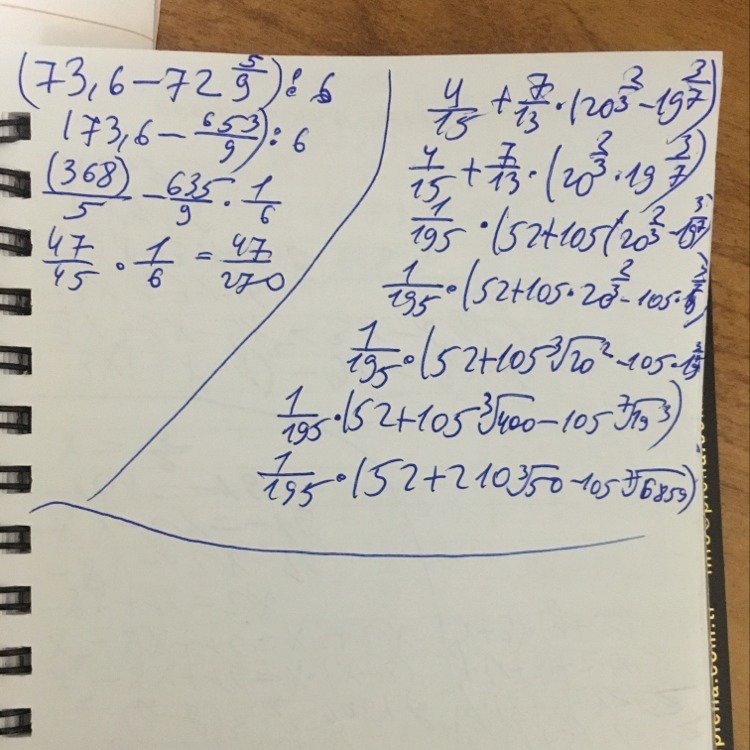 (73,6-72 5/9):6
(73,6-653/9):6
(368)/5-635/9·1/6
47/45·1/6=47/270
4/15+7/13·(20^(2/3)-19^(3/7))
4/15+7/13·(20^(2/3)·19^(3/7))
1/195·(52+105(20^(2/3)-19^(3/7))
1/195·(52+105·20^(2/3)-105·19^(3/7))
1/195·(52+105∛20²-105·19^(3/7)
1/195·(52+105∛400-105⁷√19³)
1/195·(52+210∛50-105⁷√6859)